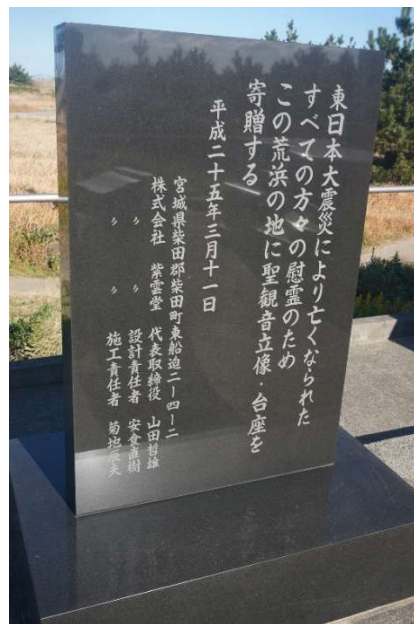 東日本大震災により亡くなられた
すべての方々の慰霊のため
この荒浜の地に聖観音立像・台座を
寄贈する
平成二十五年三月十一日
宮城県柴田郡柴田町東船迫二ー四ー二
株式会社 紫雲堂 代表取締役 山田哲雄
〃 〃 設計責任者 安食直樹
〃 〃 施工責任者 菊地辰夫